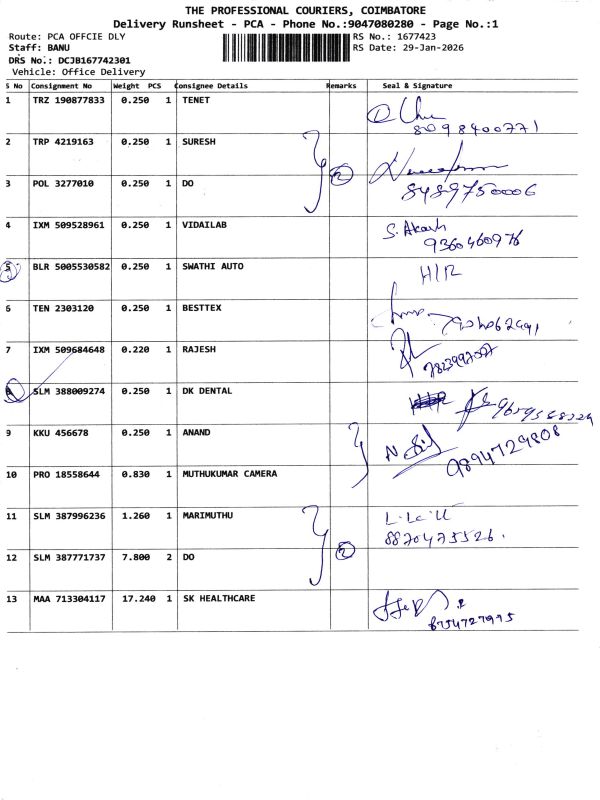 THE PROFESSIONAL COURIERS, COIMBATORE
Delivery Runsheet - PCA - Phone No.:9047080280 - Page No.:1
Route: PCA OFFCIE DLY
RS No.: 1677423
Staff: BANU
RS Date: 29-Jan-2026
DRS No.: DCJB167742301
Vehicle: Office Delivery
S No Consignment No Weight PCS Consignee Details Remarks Seal & Signature
1 TRZ 190877833 0.250 1 TENET
8098400771
2 TRP 4219163 0.250 1 SURESH
2
3 POL 3277010 0.250 1 DO
8489750006
4 IXM 509528961 0.250 1 VIDAILAB S. Akash
9360460976
5 BLR 5005530582 0.250 1 SWATHI AUTO H/R
6 TEN 2303120 0.250 1 BESTTEX
7 IXM 509684648 0.220 1 RAJESH
8 SLM 388009274 0.250 1 DK DENTAL
9 KKU 456678 0.250 1 ANAND
9894729808
10 PRO 18558644 0.830 1 MUTHUKUMAR CAMERA
11 SLM 387996236 1.260 1 MARIMUTHU
8870475526.
2
12 SLM 387771737 7.800 2 DO
13 MAA 713304117 17.240 1 SK HEALTHCARE
8754727975